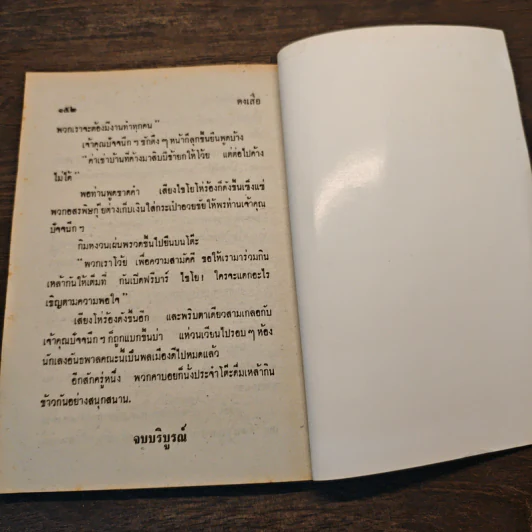 ๑๕๒ ดงเสือ
พวกเราจะต้องมีงานทำทุกคน"
เจ้าคุณปัจจนึก ๆ ชักดึง ๆ หน้าก็ลุกขึ้นยืนพูดบ้าง
"ค่าเช่าบ้านที่ค้างมาสิบปีข้ายกให้โว้ย แต่ต่อไปค้าง
ไม่ได้"
พอท่านพูดขาดคำ เสียงไชโยโห่ร้องก็ดังขึ้นเซ็งแซ่
พวกอสรพิษกุ๊ยต่างเก็บเงินใส่กระเป๋าอวยชัยให้พรท่านเจ้าคุณ
ปัจจนึก ๆ
กิมหงวนเผ่นพรวดขึ้นไปยืนบนโต๊ะ
"พวกเราโว้ย เพื่อความสามัคคี ขอให้เรามาร่วมกิน
เหล้ากันให้เต็มที่ กันเปิดฟรีบาร์ ไชโย! ใครจะแดกอะไร
เชิญตามความพอใจ"
เสียงโห่ร้องดังขึ้นอีก และพริบตาเดียวสามเกลอกับ
เจ้าคุณปัจจนึก ๆ ก็ถูกแบกขึ้นบ่า แห่วนเวียนไปรอบ ๆ ห้อง
นักเลงอันธพาลคณะนี้เป็นพลเมืองดีไปหมดแล้ว
อีกสักครู่หนึ่ง พวกคาบอยก็นั่งประจำโต๊ะดื่มเหล้ากิน
ข้าวกันอย่างสนุกสนาน.
จบบริบูรณ์